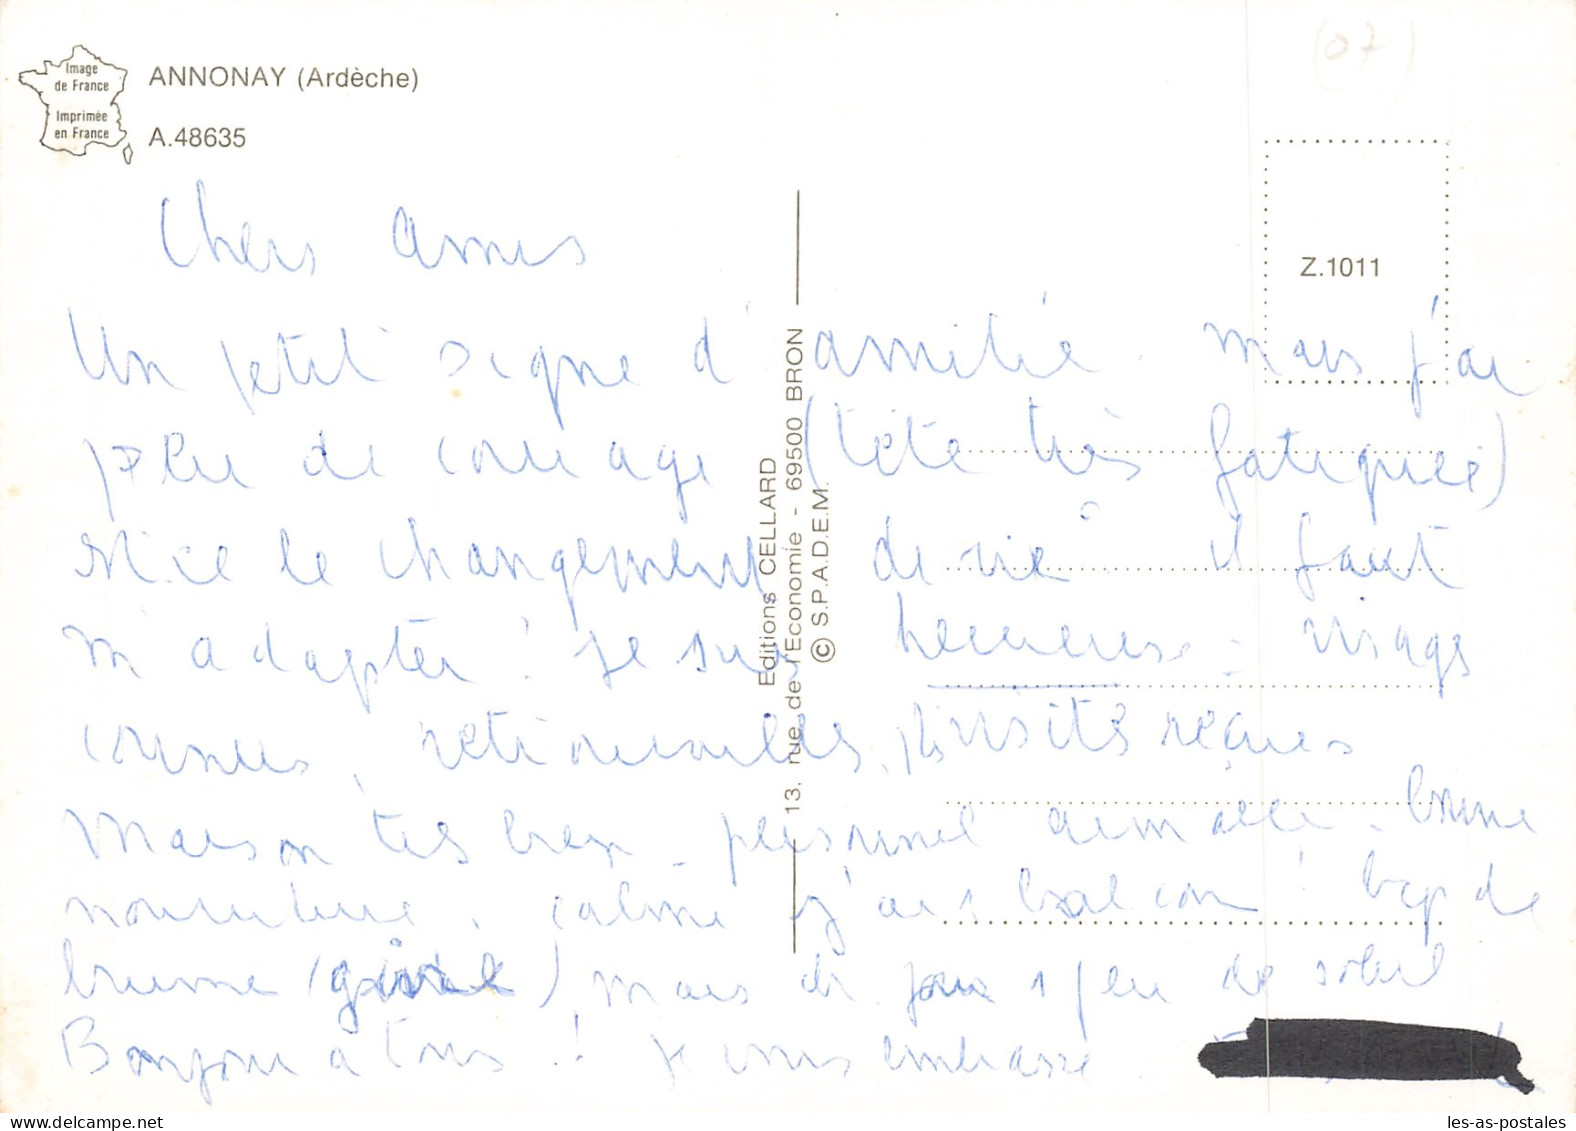 (07)
Image
de France
Imprimée
en France
ANNONAY (Ardèche)
A.48635
Z.1011
Editions CELLARD
13, rue de l'Economie - 69500 BRON
© S.P.A.D.E.M.
Chers Amis
Un petit signe d'amitié. mais j'ai
peu de courage (tête très fatiguée)
le changement de vie il faut
m'adapter ! je suis heureuse = visages
connus, retrouvailles, visites reçues
Maison très bien - personnel aimable - bonne
nourriture, calme j'ai 1 balcon ! bcp de
brume (givre) mais ce jour 1 peu de soleil
Bonjour à tous ! je vous embrasse.
les-as-postales